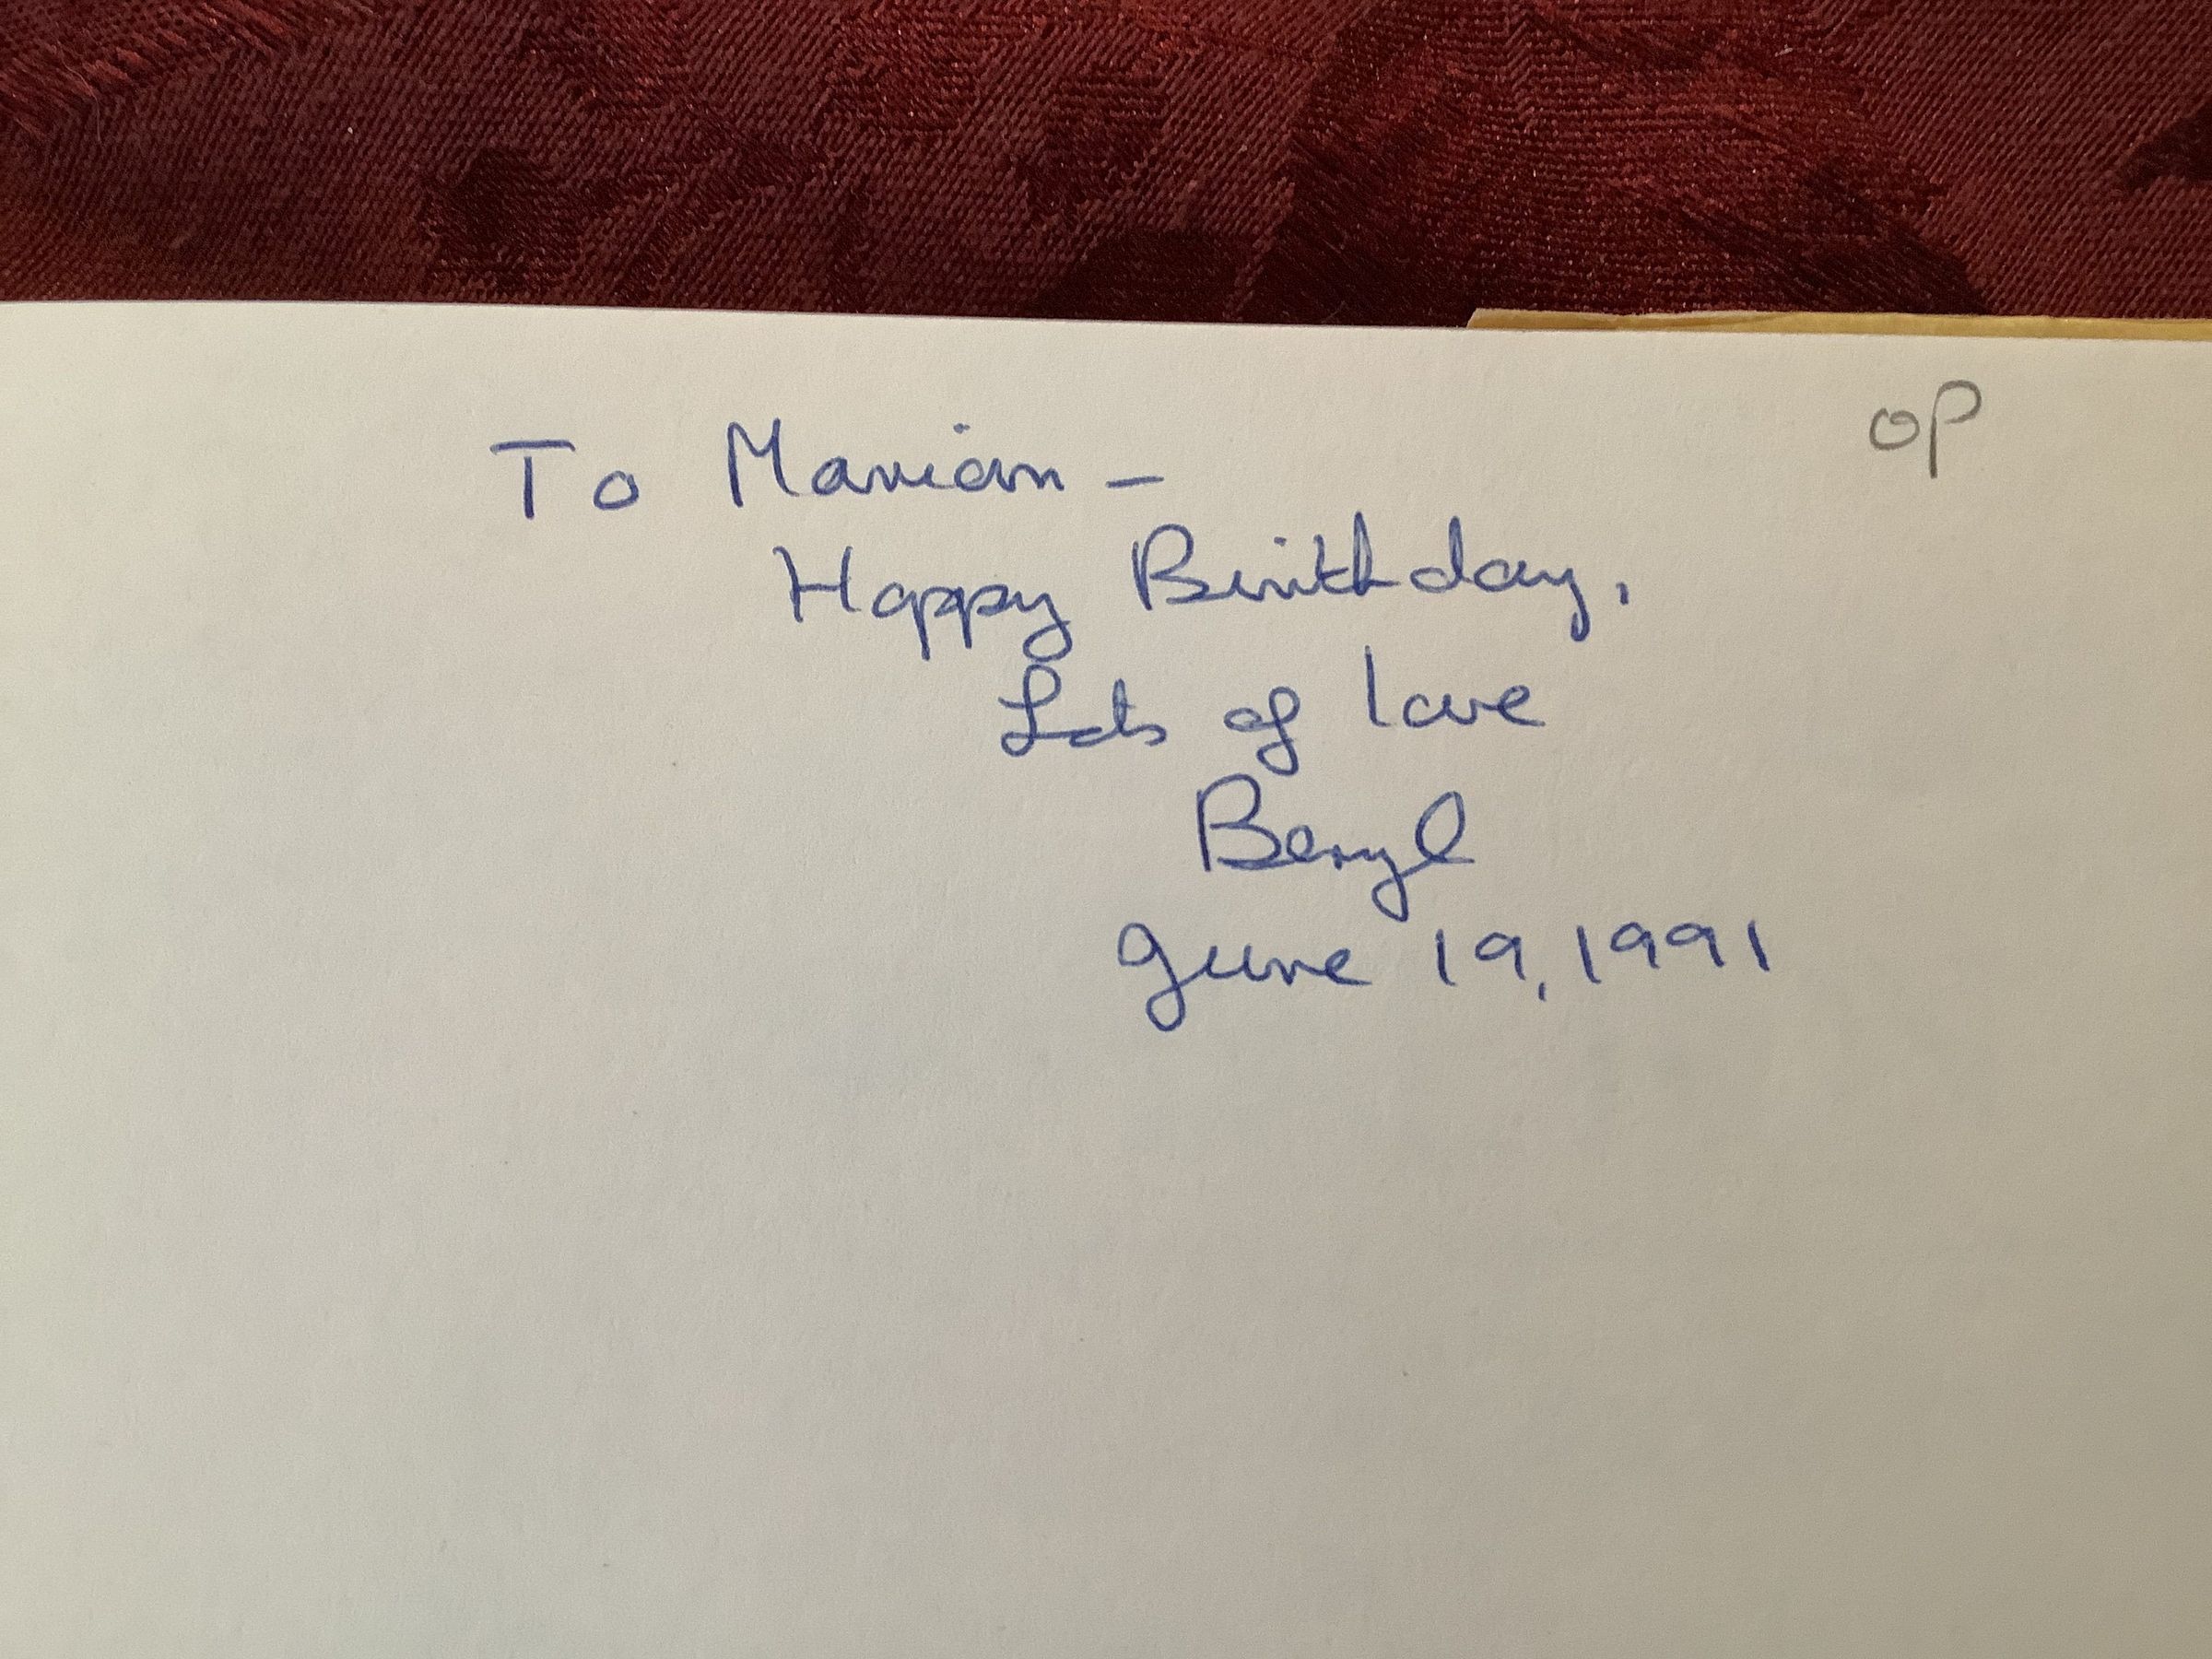 OP
To Marian –
Happy Birthday,
Lots of love
Beryl
June 19, 1991